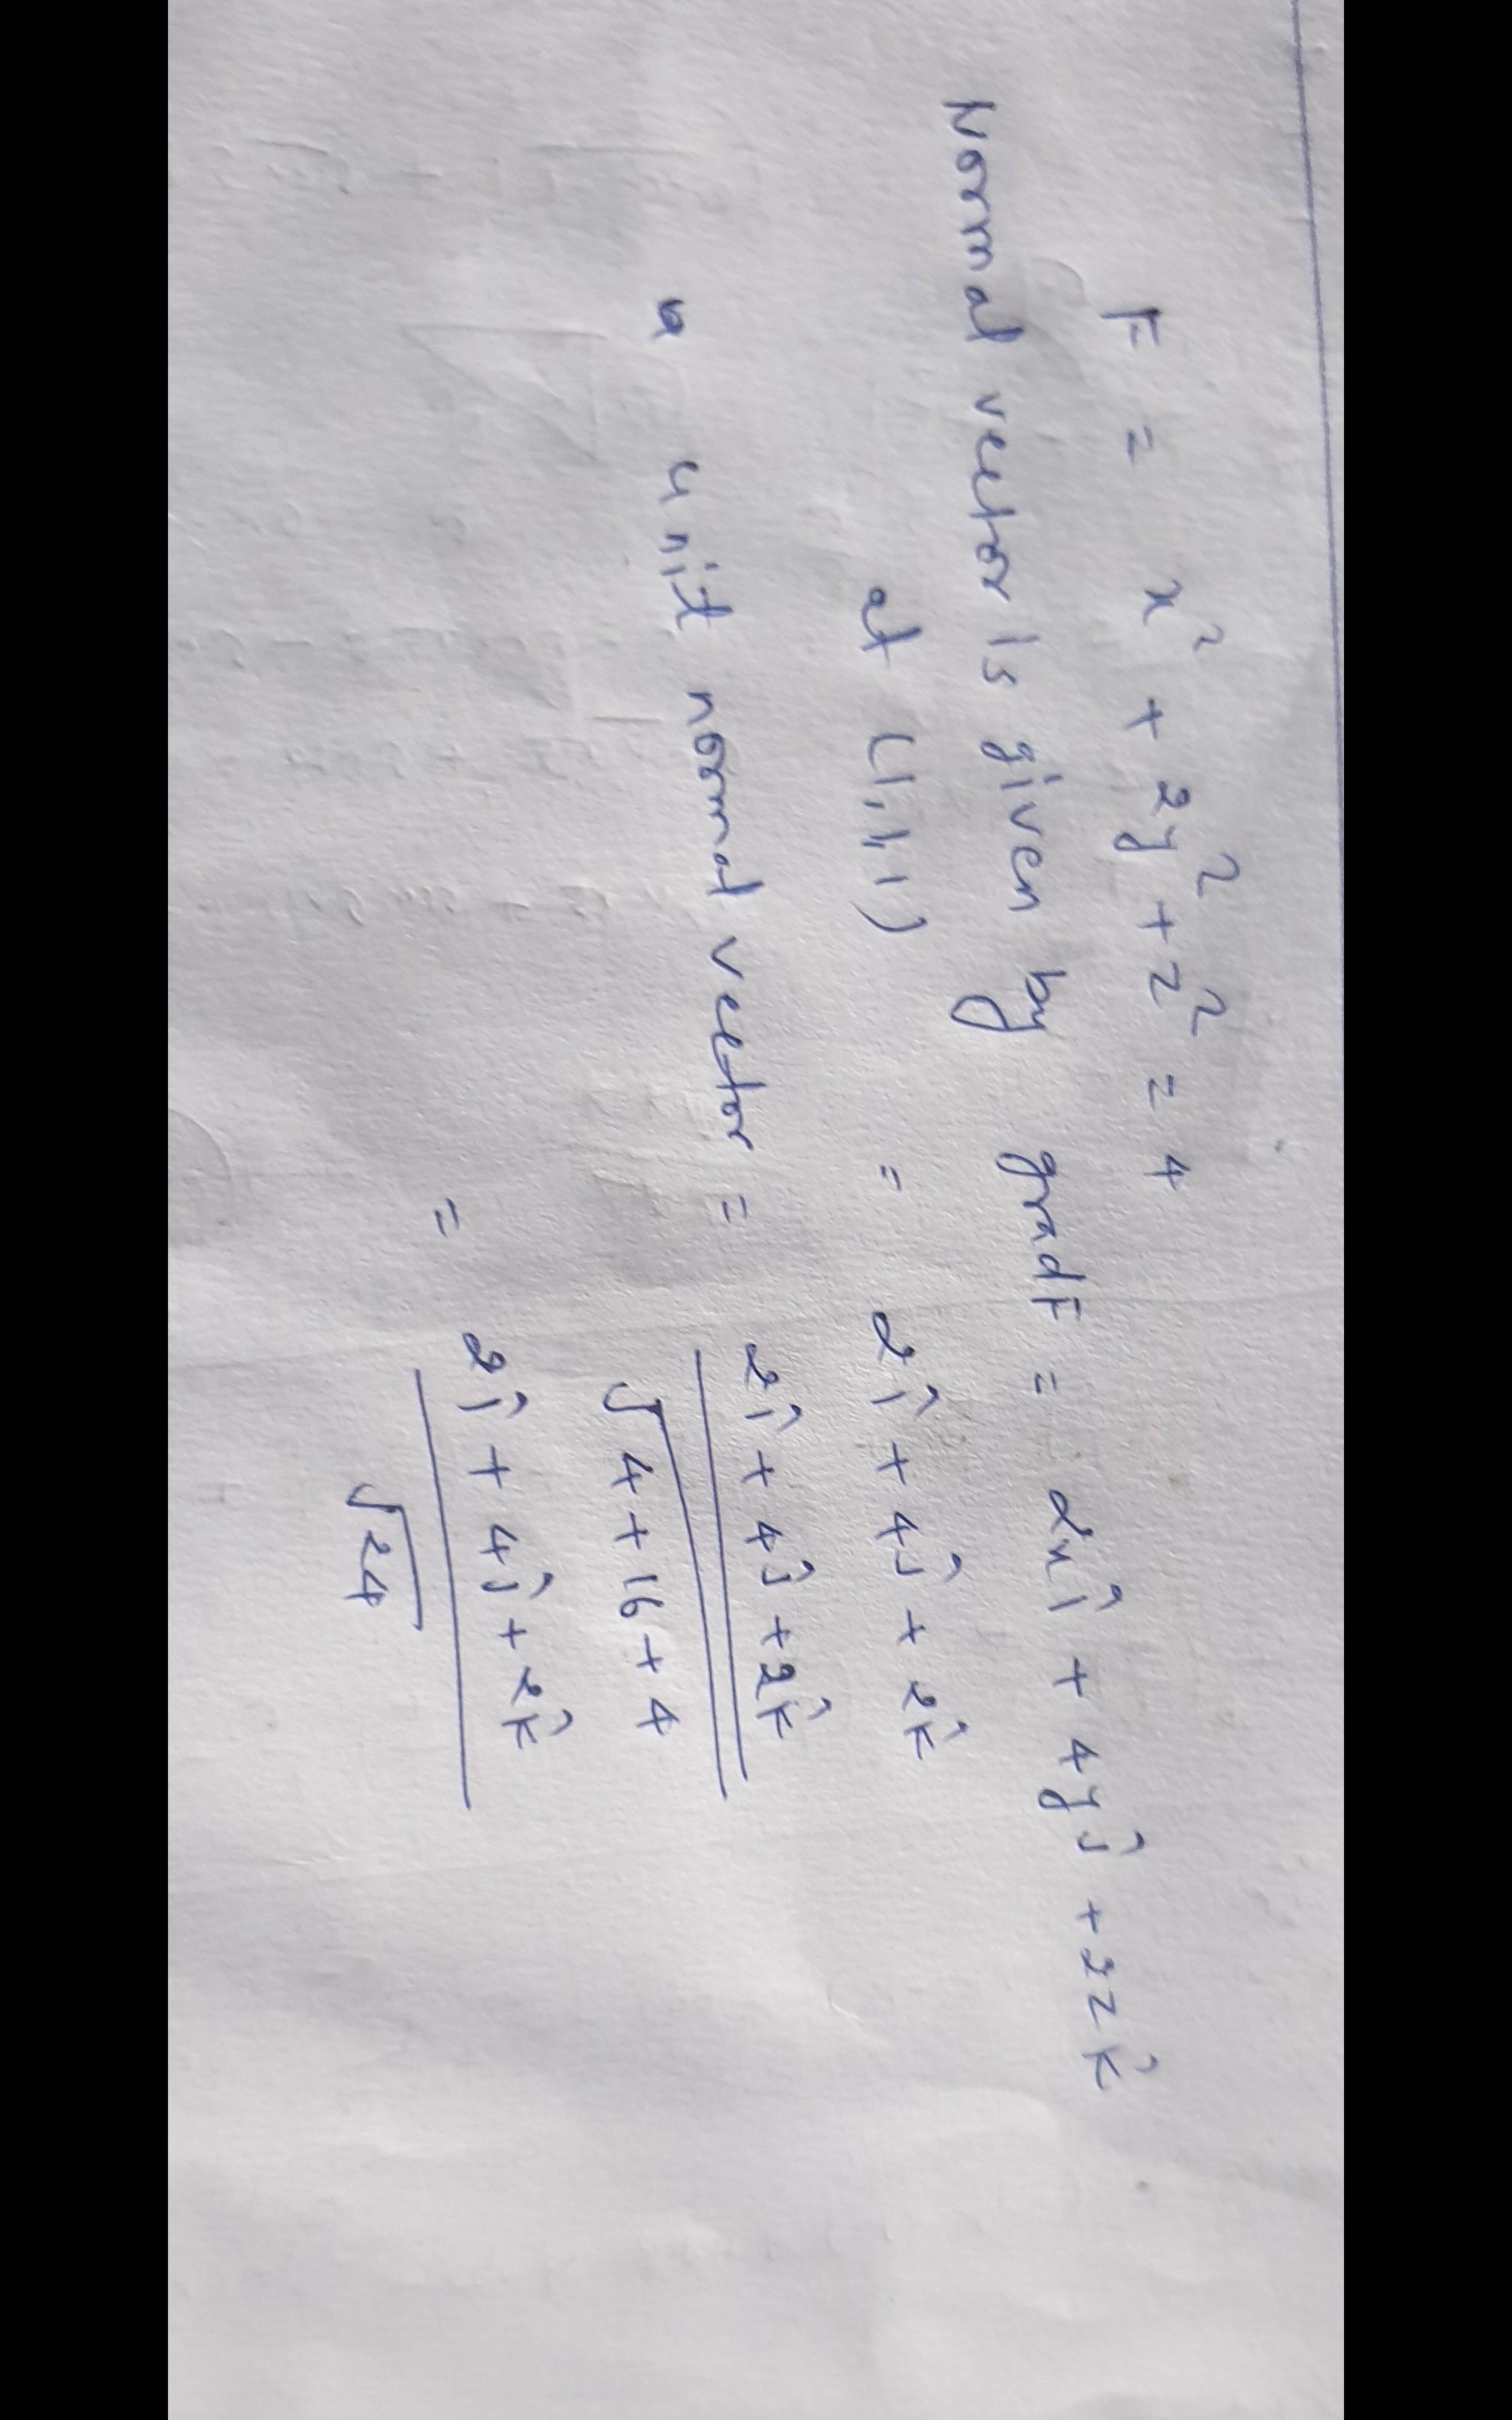 F = x² + 2y² + z² = 4
Normal vector is given by gradF = 2xî + 4yĵ + 2zk̂
at (1,1,1) = 2î + 4ĵ + 2k̂
unit normal vector = 2î + 4ĵ + 2k̂
√4+16+4
= 2î + 4ĵ + 2k̂
√24